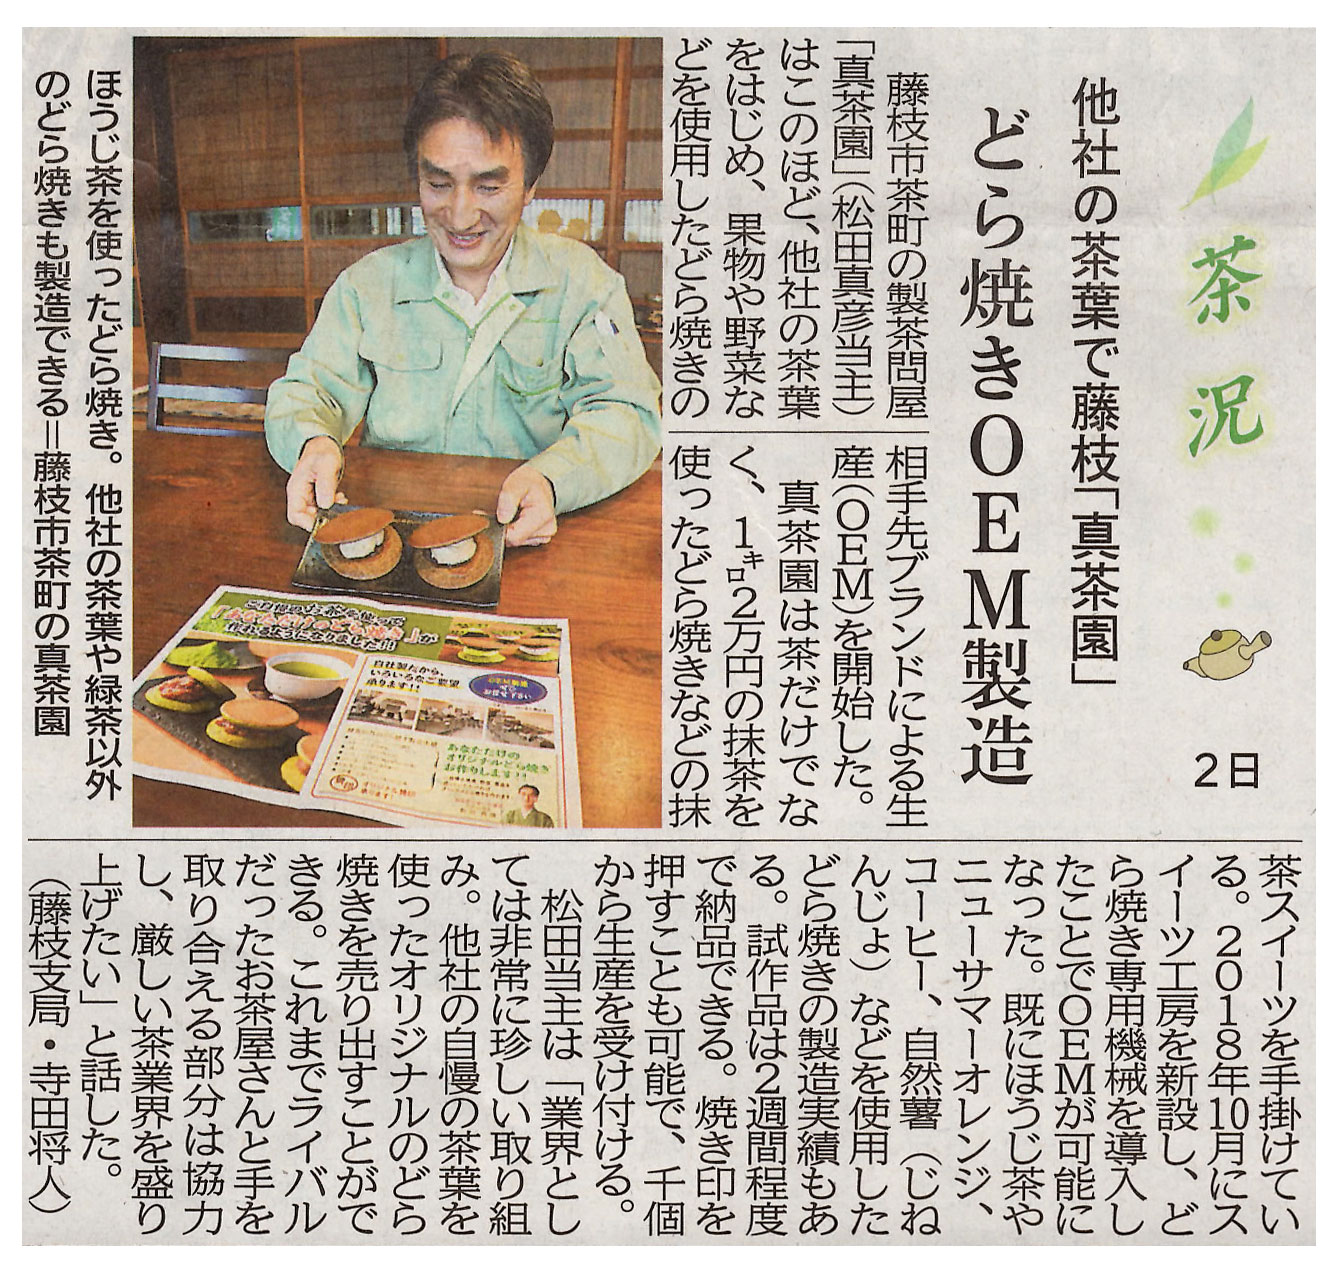 茶況
2日
他社の茶葉で藤枝「真茶園」
どら焼きOEM製造
藤枝市茶町の製茶問屋
「真茶園」(松田真彦当主)
はこのほど、他社の茶葉
をはじめ、果物や野菜な
どを使用したどら焼きの
相手先ブランドによる生
産(OEM)を開始した。
真茶園は茶だけでな
く、1㌔2万円の抹茶を
使ったどら焼きなどの抹
茶スイーツを手掛けてい
る。2018年10月にス
イーツ工房を新設し、ど
ら焼き専用機械を導入し
たことでOEMが可能に
なった。既にほうじ茶や
ニューサマーオレンジ、
コーヒー、自然薯(じね
んじょ)などを使用した
どら焼きの製造実績もあ
る。試作品は2週間程度
で納品できる。焼き印を
押すことも可能で、千個
から生産を受け付ける。
松田当主は「業界とし
ては非常に珍しい取り組
み。他社の自慢の茶葉を
使ったオリジナルのどら
焼きを売り出すことがで
きる。これまでライバル
だったお茶屋さんと手を
取り合える部分は協力
し、厳しい茶業界を盛り
上げたい」と話した。
(藤枝支局・寺田将人)
ほうじ茶を使ったどら焼き。他社の茶葉や緑茶以外
のどら焼きも製造できる＝藤枝市茶町の真茶園
ご自慢のお茶を使って
「あなただけのどら焼き」が
作れるようになりました!!
自社製だから、
いろいろなご要望
承ります!!
OEM製造
お任せ下さい
あなただけの
オリジナルどら焼き
お作りします!!